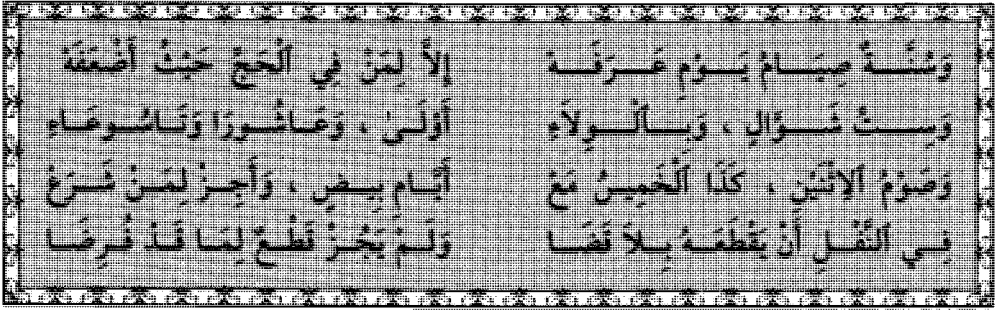 وَسُنَّةٌ صِيَامُ يَوْمِ عَرَفَةْ إِلاَّ لِمَنْ فِي ٱلْحَجِّ حَيْثُ أَضْعَفَهْ
وَسِتُّ شَوَّالٍ ، وَبِٱلْوِلاَءِ أَوْلَىٰ ، وَعَاشُورَا وَتَاسُوعَاءِ
وَصَوْمُ ٱلاثْنَيْنِ ، كَذَا ٱلْخَمِيسُ مَعْ أَيَّامِ بِيضٍ ، وَأَجِزْ لِمَنْ شَرَعْ
فِي ٱلنَّفْلِ أَنْ يَقْطَعَهُ بِلاَ قَضَا وَلَمْ يَجُزْ قَطْعٌ لِمَا قَدْ فُرِضَا